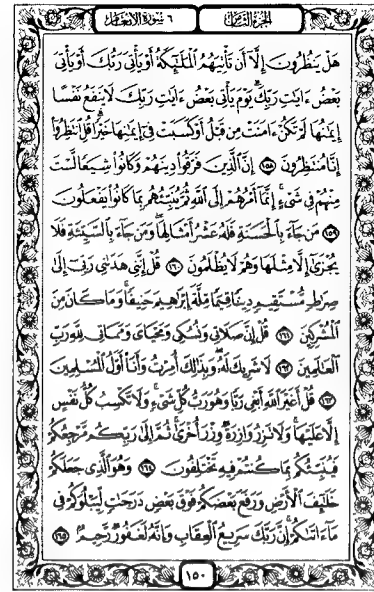 الجزء الثامن
٦ سورة الأنعام
هَلْ يَنظُرُونَ إِلَّا أَن تَأْتِيَهُمُ الْمَلَٰٓئِكَةُ أَوْ يَأْتِىَ رَبُّكَ أَوْ يَأْتِىَ
بَعْضُ ءَايَٰتِ رَبِّكَ ۗ يَوْمَ يَأْتِى بَعْضُ ءَايَٰتِ رَبِّكَ لَا يَنفَعُ نَفْسًا
إِيمَٰنُهَا لَمْ تَكُنْ ءَامَنَتْ مِن قَبْلُ أَوْ كَسَبَتْ فِىٓ إِيمَٰنِهَا خَيْرًا ۗ قُلِ انتَظِرُوٓا۟
إِنَّا مُنتَظِرُونَ ١٥٨ إِنَّ الَّذِينَ فَرَّقُوا۟ دِينَهُمْ وَكَانُوا۟ شِيَعًا لَّسْتَ
مِنْهُمْ فِى شَىْءٍ ۚ إِنَّمَآ أَمْرُهُمْ إِلَى اللَّهِ ثُمَّ يُنَبِّئُهُم بِمَا كَانُوا۟ يَفْعَلُونَ
١٥٩ مَن جَآءَ بِالْحَسَنَةِ فَلَهُۥ عَشْرُ أَمْثَالِهَا ۖ وَمَن جَآءَ بِالسَّيِّئَةِ فَلَا
يُجْزَىٰٓ إِلَّا مِثْلَهَا وَهُمْ لَا يُظْلَمُونَ ١٦٠ قُلْ إِنَّنِى هَدَىٰنِى رَبِّىٓ إِلَىٰ
صِرَٰطٍ مُّسْتَقِيمٍ دِينًا قِيَمًا مِّلَّةَ إِبْرَٰهِيمَ حَنِيفًا ۚ وَمَا كَانَ مِنَ
الْمُشْرِكِينَ ١٦١ قُلْ إِنَّ صَلَاتِى وَنُسُكِى وَمَحْيَاىَ وَمَمَاتِى لِلَّهِ رَبِّ
الْعَٰلَمِينَ ١٦٢ لَا شَرِيكَ لَهُۥ ۖ وَبِذَٰلِكَ أُمِرْتُ وَأَنَا۠ أَوَّلُ الْمُسْلِمِينَ
١٦٣ قُلْ أَغَيْرَ اللَّهِ أَبْغِى رَبًّا وَهُوَ رَبُّ كُلِّ شَىْءٍ ۚ وَلَا تَكْسِبُ كُلُّ نَفْسٍ
إِلَّا عَلَيْهَا ۚ وَلَا تَزِرُ وَازِرَةٌ وِزْرَ أُخْرَىٰ ۚ ثُمَّ إِلَىٰ رَبِّكُم مَّرْجِعُكُمْ
فَيُنَبِّئُكُم بِمَا كُنتُمْ فِيهِ تَخْتَلِفُونَ ١٦٤ وَهُوَ الَّذِى جَعَلَكُمْ
خَلَٰٓئِفَ الْأَرْضِ وَرَفَعَ بَعْضَكُمْ فَوْقَ بَعْضٍ دَرَجَٰتٍ لِّيَبْلُوَكُمْ فِى
مَآ ءَاتَىٰكُمْ ۗ إِنَّ رَبَّكَ سَرِيعُ الْعِقَابِ وَإِنَّهُۥ لَغَفُورٌ رَّحِيمٌۢ ١٦٥
١٥٠